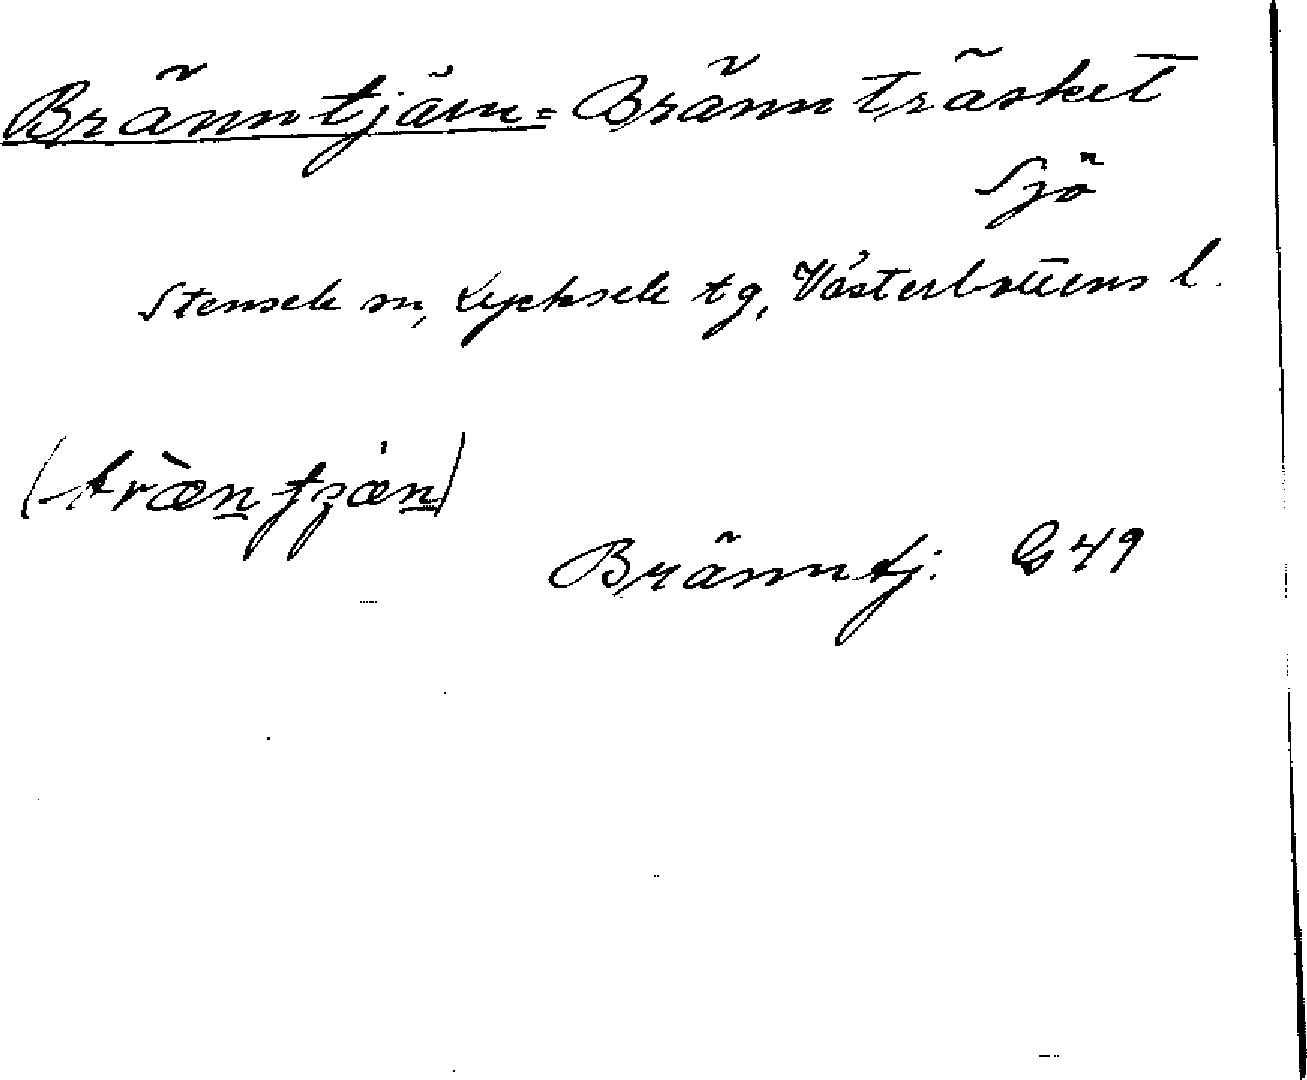 Bränntjärn = Bränn träsket
Sjö
Stensele sn, Lycksele tg, Västerbottens l.
Bränntj. G 49